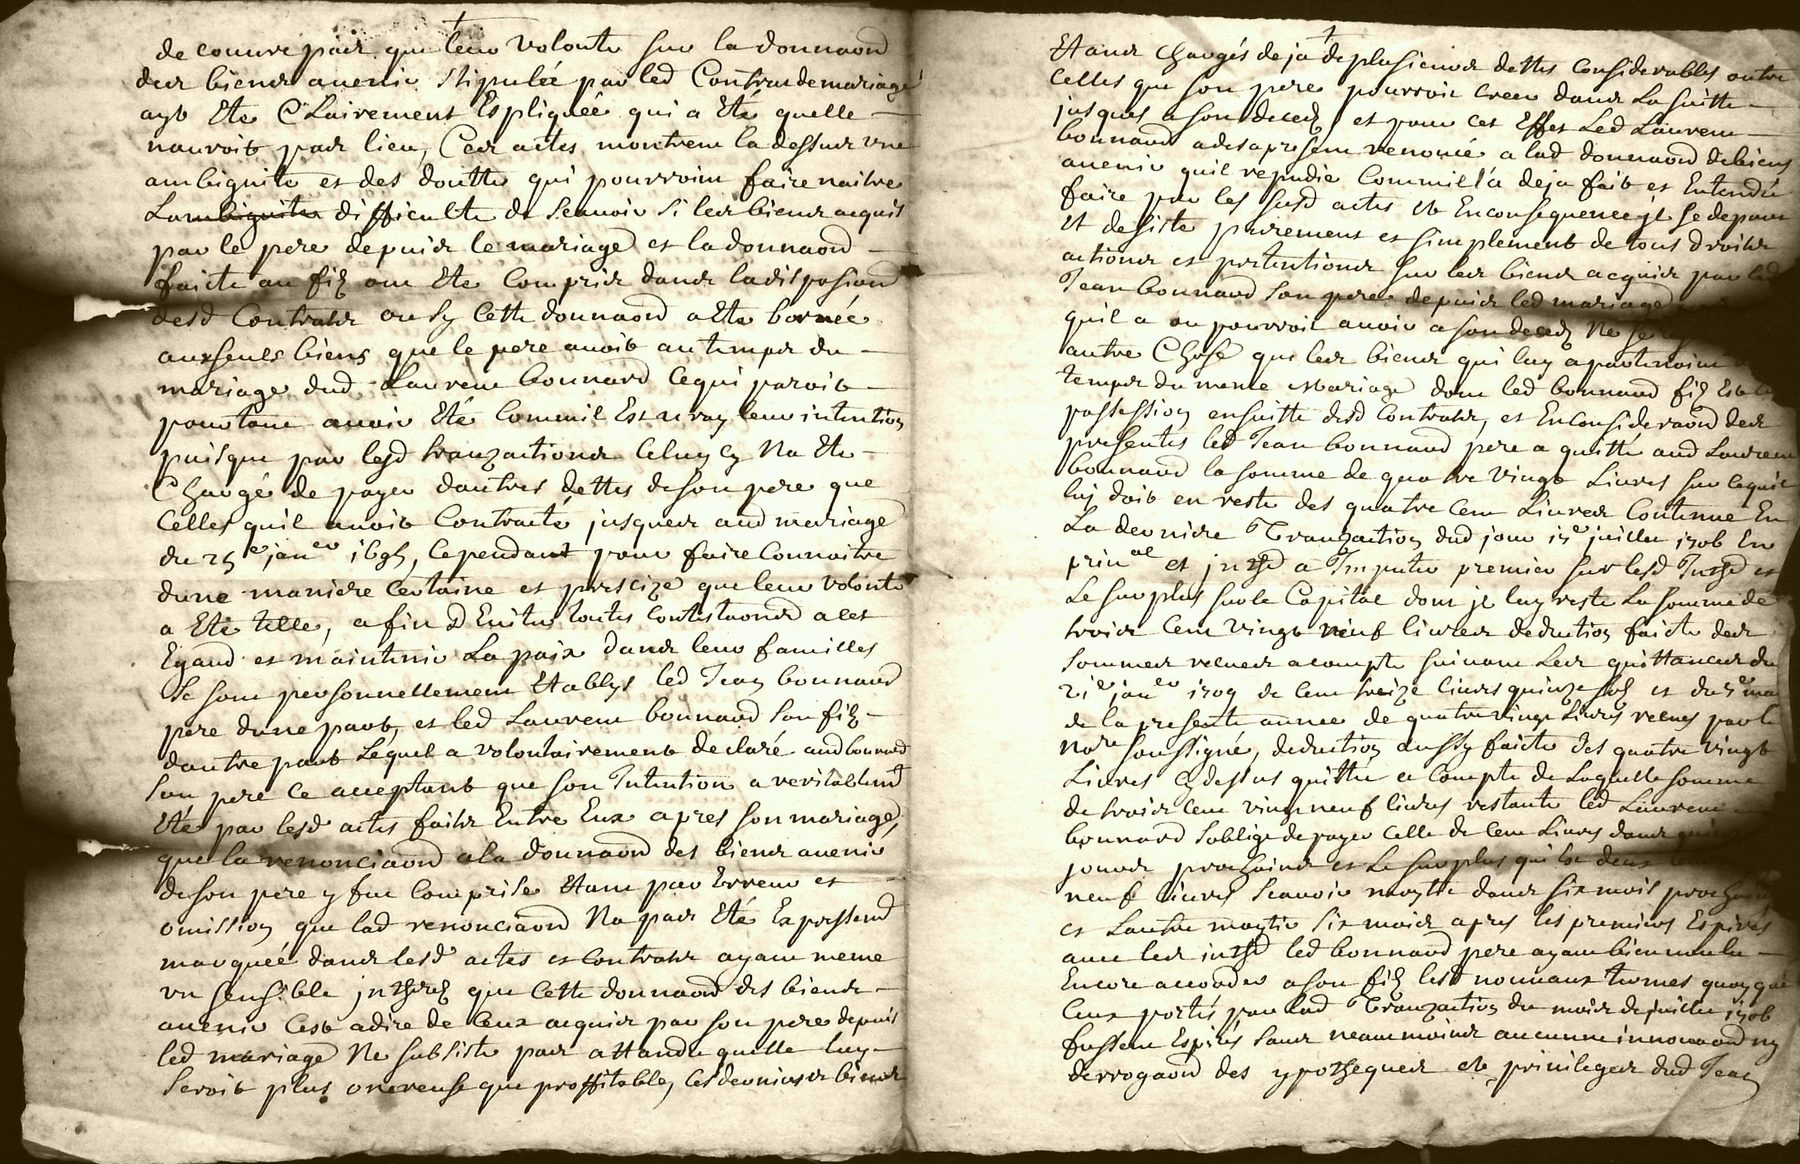 de couure pas que leur volonté sur la donnaond
des biens auenir stipulée par led Contrat de mariage
ayt Eté Clairement Expliquée qui a Eté quelle
nauroit pas lieu, Ces actes montrent la dessus une
ambiguité et des doutte qui pourroint faire naitre
difficulté de scauoir si les biens acquis
par le pere depuis le mariage et la donnaond
faicte au filz ont Eté Compris dans la disposiond
desd Contrats ou sy Cette donnaond a Eté bornée
aux seuls biens que le pere auoit au temps du
mariage dud Laurent bonnard Ce qui paroit
pourtant auoir Eté Comme il Est vray leur intention
puisque par lesd tranzactions Celuy cy Na Eté
Chargé de payer dautres dettes de son pere que
Celles quil auoit Contracté jusques aud mariage
du 25e janer 1695, Cependant pour faire Connoitre
dune maniere Certaine et prescize que leur volonté
a Eté telle, afin dEuiter toutes Contestaonds a cet
Egard et maintenir La paix dans leur familles
Se sont personnellement Etablys led Jean bonnard
pere dune part, et led Laurent bonnard son filz
dautre part Lequel a volontairement declaré aud bonnard
son pere ce acceptant que son Intention a veritablemt
Eté par lesd actes faits Entre Eux apres son mariage,
que la renonciaond a la donnaond des biens auenir
de son pere y fut Comprise Etant par Erreur et
omission que lad renonciaond Na pas Eté Expressemt
marquée dans lesd actes et Contrats ayant meme
un sensible jntherez que Cette donnaond des biens
auenir Cest a dire de Ceux acquis par son pere depuis
led mariage Ne subsiste pas attandu quelle luy
seroit plus onereuse que proffitable, les derniers biens
Etant Chargés deja de plusieurs dettes Considerables outre
Celles que son pere pourroit Creer dans La suitte
jusques a son decez, et pour cet Effet Led Laurent
bonnard a des a present renoncé a lad donnaond de biens
auenir quil repudie Comme il la deja fait et Entendu
faire par les susd actes et En consequence jl se depart
et desiste purement et simplement de tous droits
actions et pretentions sur les biens acquis par led
Jean bonnard son pere depuis led mariage
quil a ou pourroit auoir a son decez Ne se
autre Chose que les biens qui luy apartenoint
temps du meme mariage dont led bonnard filz Est En
possession ensuitte desd Contrats, et En consideraond des
presentes led Jean bonnard pere a quitté aud Laurent
bonnard la somme de quatre vingt Liures sur ce quil
luj doit en reste des quatre Cent Liures Contenue En
La derniere Tranzaction dud jour 15e juillet 1706 En
prinal et jnthd a Imputer premier sur lesd Inthd et
Le surplus sur le Capital dont jl luy reste La somme de
trois Cent vingt neuf liures deduction faicte des
sommes receues a compte suiuant Les quittances du
21e janer 1709 de Cent treize liures quinze solz et du 5e may
de la presente année de quatre vingt Liures receues par le
nore soussigné, deduction aussy faicte des quatre vingt
Liures Cy dessus quittés a Compte de Laquelle somme
de trois Cent vingt neuf liures restante led Laurent
bonnard soblige de payer Celle de Cent Liures dans
jours prochains et Le surplus qui Est deux Cent
neuf liures scauoir moytié dans six mois prochains
et Lautre moytié six mois apres les premiers Expirés
auec les jnthd led bonnard pere ayant bien voulu
Encore accorder a son filz lesd nouueaux termes quoyque
Ceux portés par lad Tranzaction du mois de juillet 1706
fussent Expirés sans neanmoins aucune innouaond ny
derrogaond des ypotheques et priuileges dud Jean